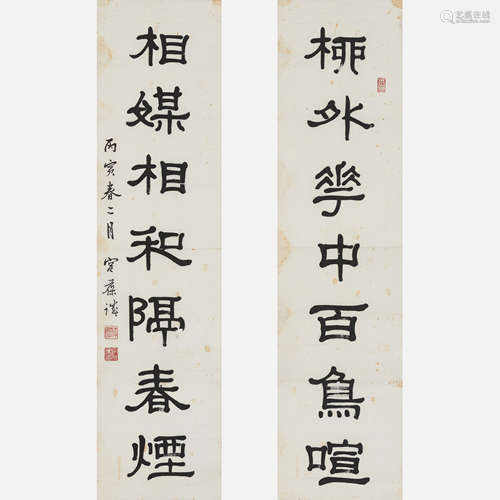 柳外花中百鳥喧
相媒相和隔春煙
丙寅春二月 宮葆諴